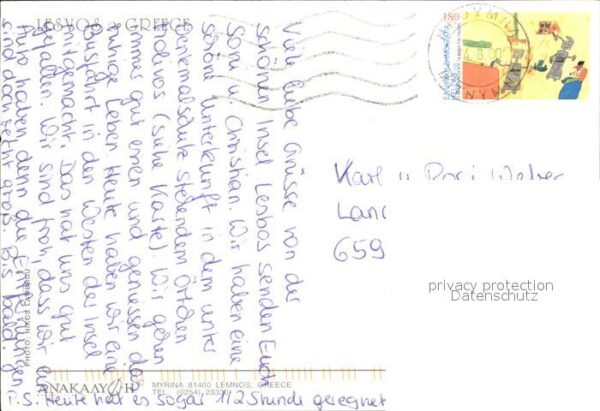 LESVOS - GREECE
Viele liebe Grüsse von der
schönen Insel Lesbos senden Euch
u. Christian. Wir haben eine
schöne Unterkunft in dem unter
Denkmalschutz stehendem Örtchen
Molivos (siehe Karte). Wir gehen
immer gut essen und geniessen das
ruhige Leben. Heute haben wir eine
Busfahrt in den Westen der Insel
mitgemacht. Das hat uns gut
gefallen. Wir sind froh, dass wir ein
Auto haben denn die Entfernungen
sind doch sehr groß. Bis bald!
P.S. Heute hat es sogar 1/2 Stunde geregnet
180
Karl u. Dori
659
privacy protection
Datenschutz
ΑΝΑΚΑΛΥΨΗ
MYRINA 81400 LEMNOS, GREECE
TEL. (0254) 23330